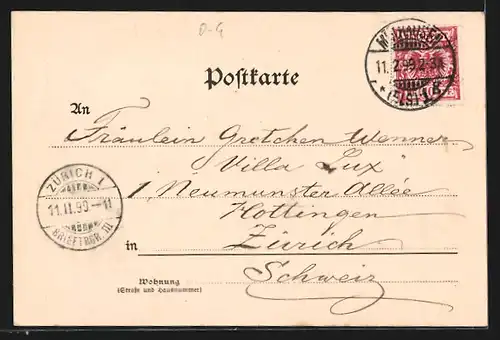 D-G
Postkarte
MÜLHAUSEN
11.2.99.2-3N
* (ELS) 1 B *
An
Fräulein Gretchen Wenner
Villa Lux
1, Neumünster Allée
Hottingen
in Zürich
Schweiz
ZÜRICH I
11.II.99.-11
BRIEFTRÄG. III
Wohnung
(Straße und Hausnummer)